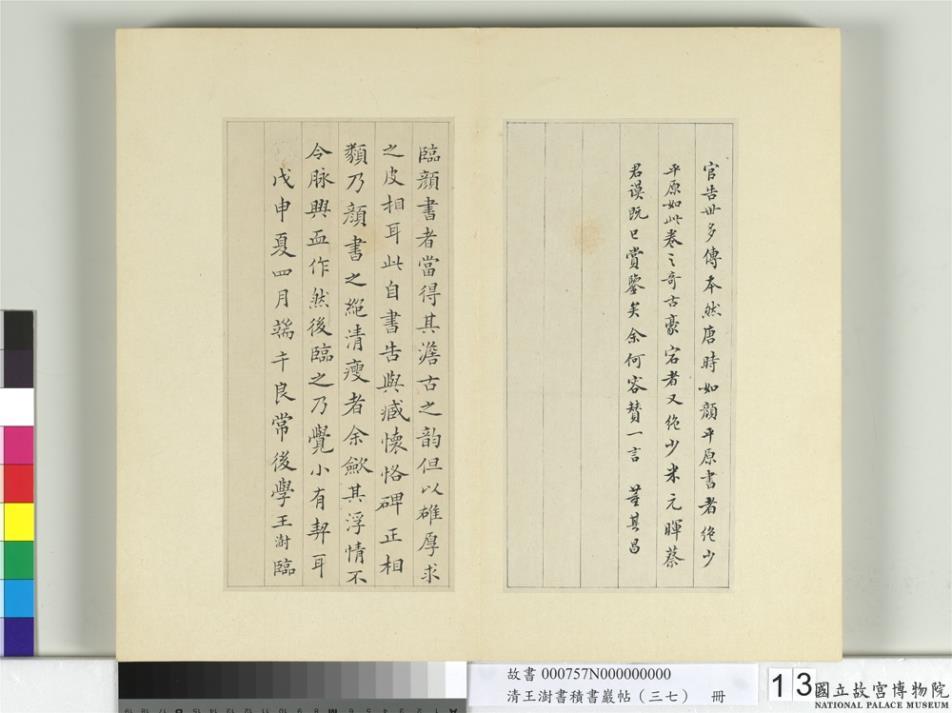 官告世多傳本然唐時如顏平原書者絕少
平原如此卷之奇古豪宕者又絕少米元暉蔡
君謨既已賞鑒矣余何容贊一言 董其昌
臨顏書者當得其澹古之韵但以雄厚求
之皮相耳此自書告與臧懷恪碑正相
類乃顏書之絕清瘦者余歛其浮情不
令脉興血作然後臨之乃覺小有契耳
戊申夏四月端午良常後學王澍臨
故書 000757N000000000
清王澍書積書巖帖（三七） 冊
13
國立故宮博物院
NATIONAL PALACE MUSEUM